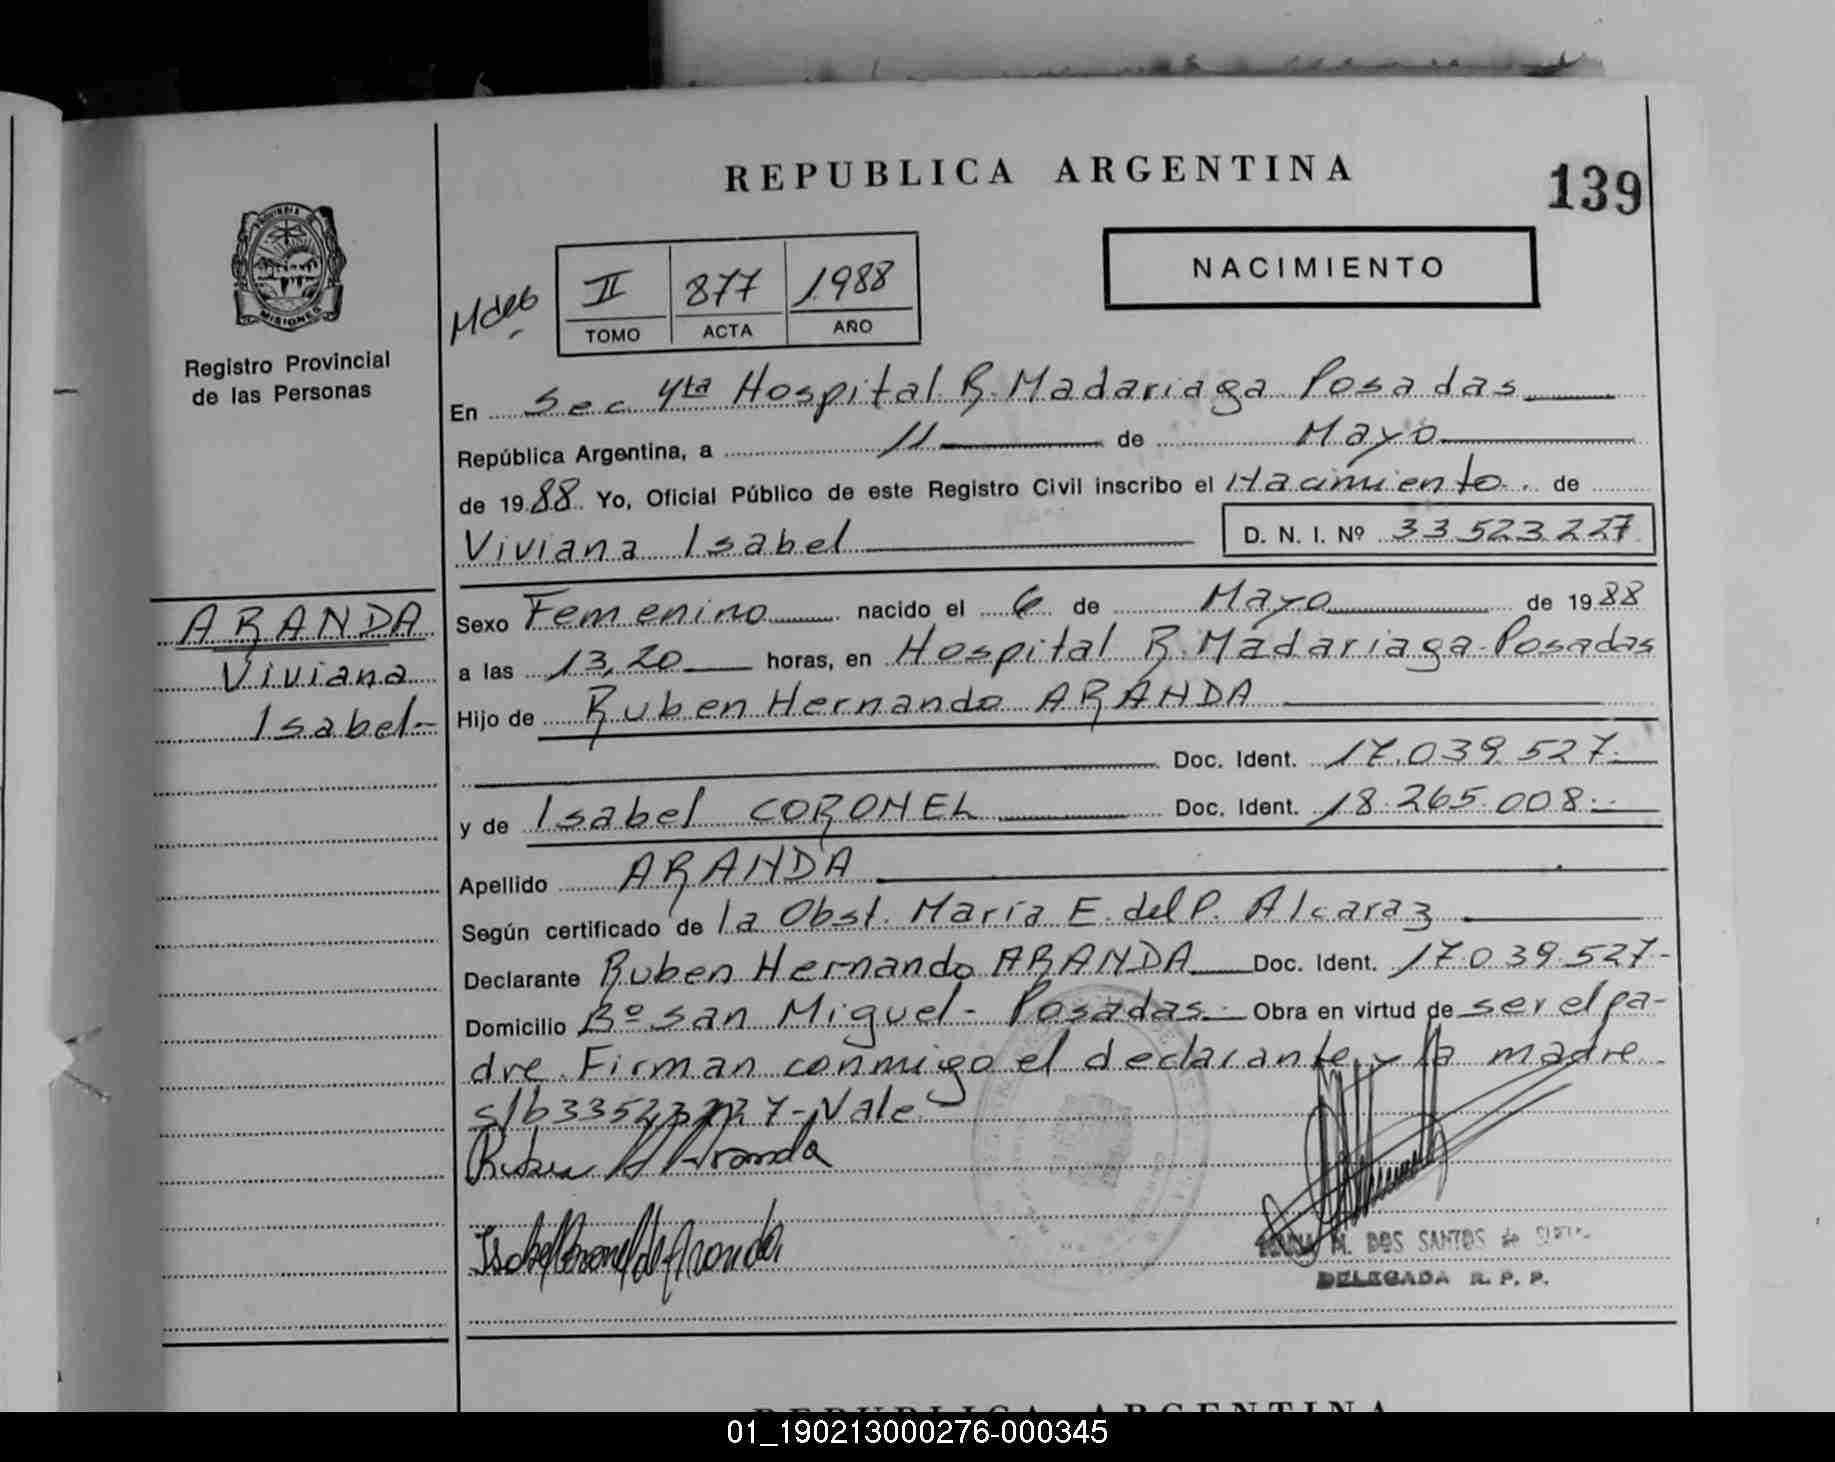 REPUBLICA ARGENTINA
139
PROVINCIA DE
MISIONES
Registro Provincial
de las Personas
II 877 1988
TOMO ACTA AÑO
NACIMIENTO
En Sec 4ta Hospital R. Madariaga Posadas
República Argentina, a 11 de Mayo
de 1988. Yo, Oficial Público de este Registro Civil inscribo el Nacimiento de
Viviana Isabel D. N. I. Nº 33523227
ARANDA
Viviana
Isabel-
Sexo Femenino nacido el 6 de Mayo de 1988
a las 13,20 horas, en Hospital R. Madariaga-Posadas
Hijo de Ruben Hernando ARANDA
Doc. Ident. 17.039.527.
y de Isabel CORONEL Doc. Ident. 18.265.008.-
Apellido ARANDA
Según certificado de la Obst. María E. del P. Alcaraz
Declarante Ruben Hernando ARANDA Doc. Ident. 17.039.527-
Domicilio Bº san Miguel- Posadas.- Obra en virtud de ser el pa-
dre. Firman conmigo el declarante y la madre
s/b 33523227-Vale
Ruben H Aranda
Isabel Coronel de Aranda
M. DOS SANTOS de
DELEGADA R. P. P.
REPUBLICA ARGENTINA
01_190213000276-000345